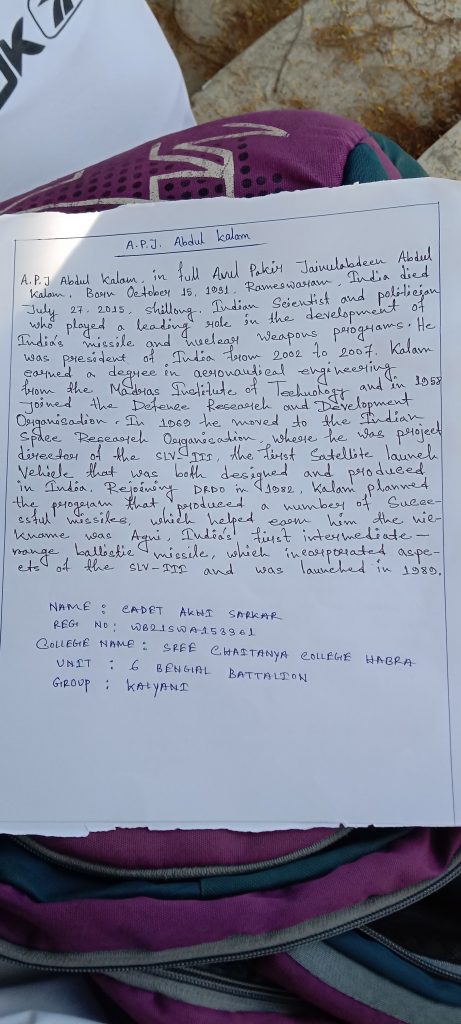 A.P.J. Abdul Kalam
A.P.J Abdul Kalam, in full Avul Pakir Jainulabdeen Abdul
Kalam, Born October 15, 1931, Rameswaram, India died
July 27, 2015, Shillong, Indian Scientist and politician
who played a leading role in the development of
India's missile and nuclear weapons programs. He
was president of India from 2002 to 2007. Kalam
earned a degree in aeronautical engineering
from the Madras Institute of Technology and in 1958
joined the Defence Research and Development
Organisation. In 1969 he moved to the Indian
Space Research Organisation, where he was project
director of the SLV-III, the first Satellite launch
Vehicle that was both designed and produced
in India. Rejoining DRDO in 1982, Kalam planned
the program that produced a number of Succe-
ssful missiles, which helped earn him the nic-
kname was Agni, India's first intermediate-
range ballistic missile, which incorporated aspe-
cts of the SLV-III and was launched in 1989.
NAME : CADET AKHI SARKAR
REG. NO: WB21SWA153961
COLLEGE NAME : SREE CHAITANYA COLLEGE HABRA
UNIT : 6 BENGAL BATTALION
GROUP : KALYANI